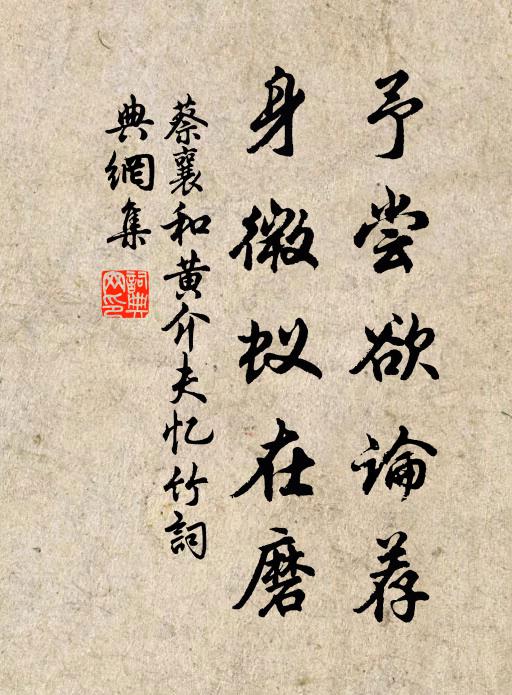 予尝欲論荐
身微蚁在磨
蔡襄和黄介夫忆竹詞
典網集
詞典
网印